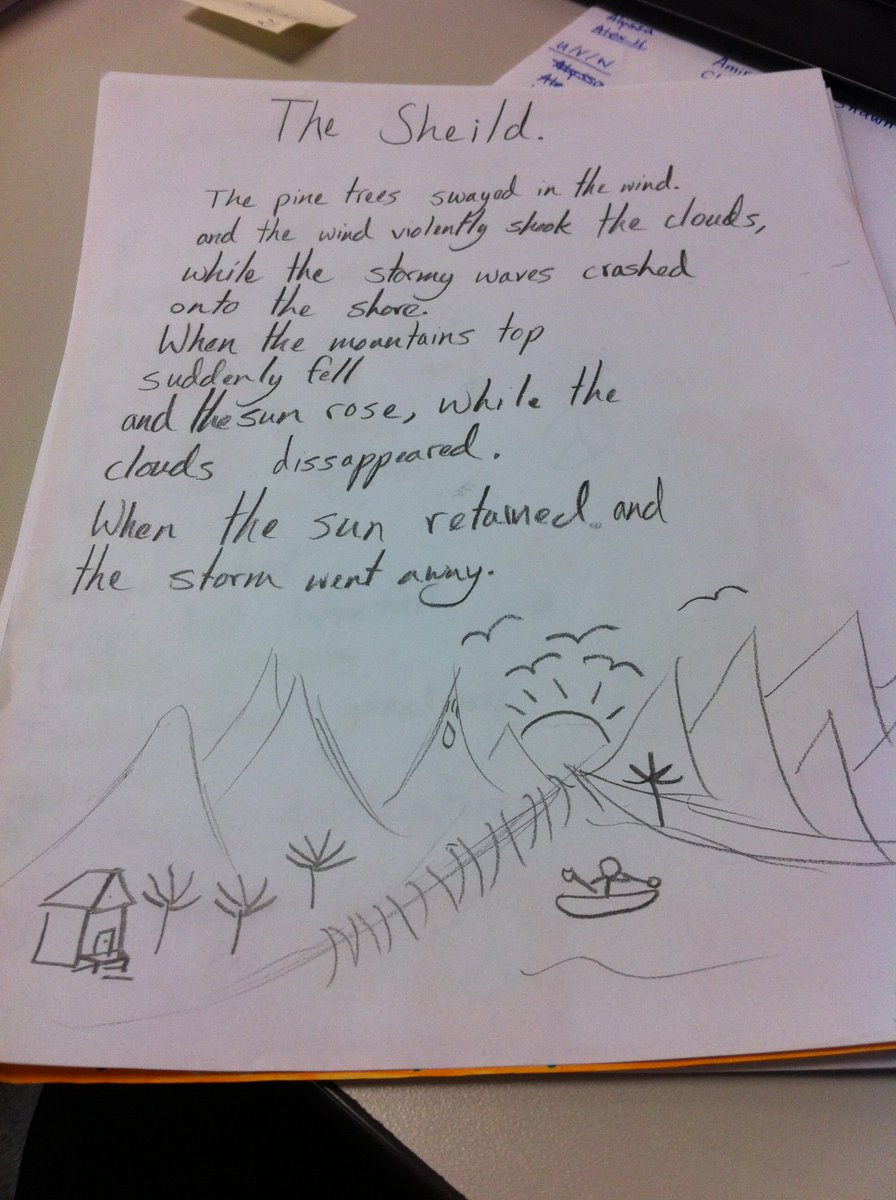 Alyssa
Alex H.
Alyssa
The Sheild.
The pine trees swayed in the wind.
and the wind violently shook the clouds,
while the stormy waves crashed
onto the shore.
When the mountains top
suddenly fell
and the sun rose, while the
clouds dissappeared.
When the sun retained and
the storm went away.